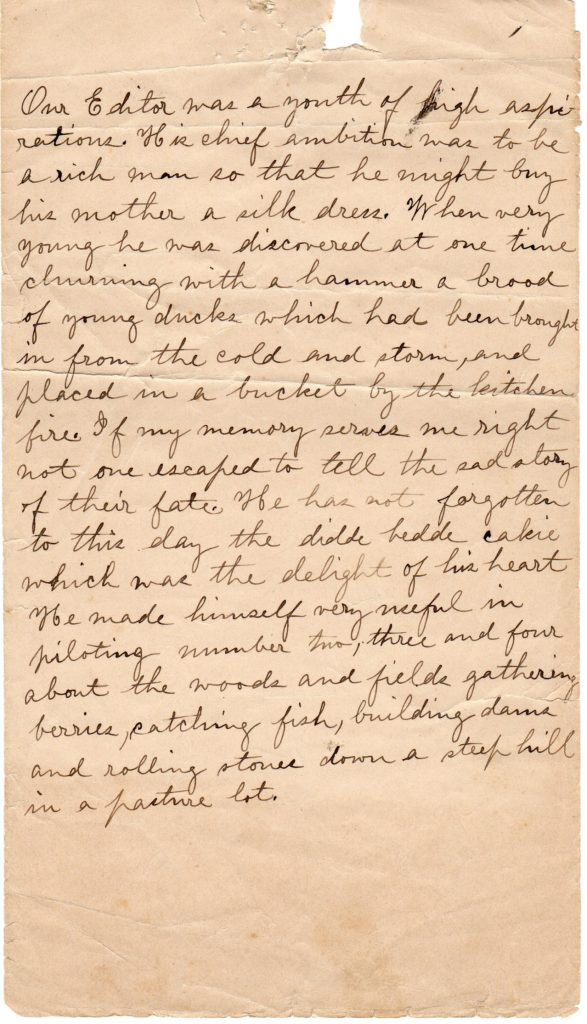 Our Editor was a youth of high aspi-
rations. His chief ambition was to be
a rich man so that he might buy
his mother a silk dress. When very
young he was discovered at one time
churning with a hammer a brood
of young ducks which had been brought
in from the cold and storm, and
placed in a bucket by the kitchen
fire. If my memory serves me right
not one escaped to tell the sad story
of their fate. He has not forgotten
to this day the didde bedde cakie
which was the delight of his heart
He made himself very useful in
piloting number two, three and four
about the woods and fields gathering
berries, catching fish, building dams
and rolling stones down a steep hill
in a pasture lot.